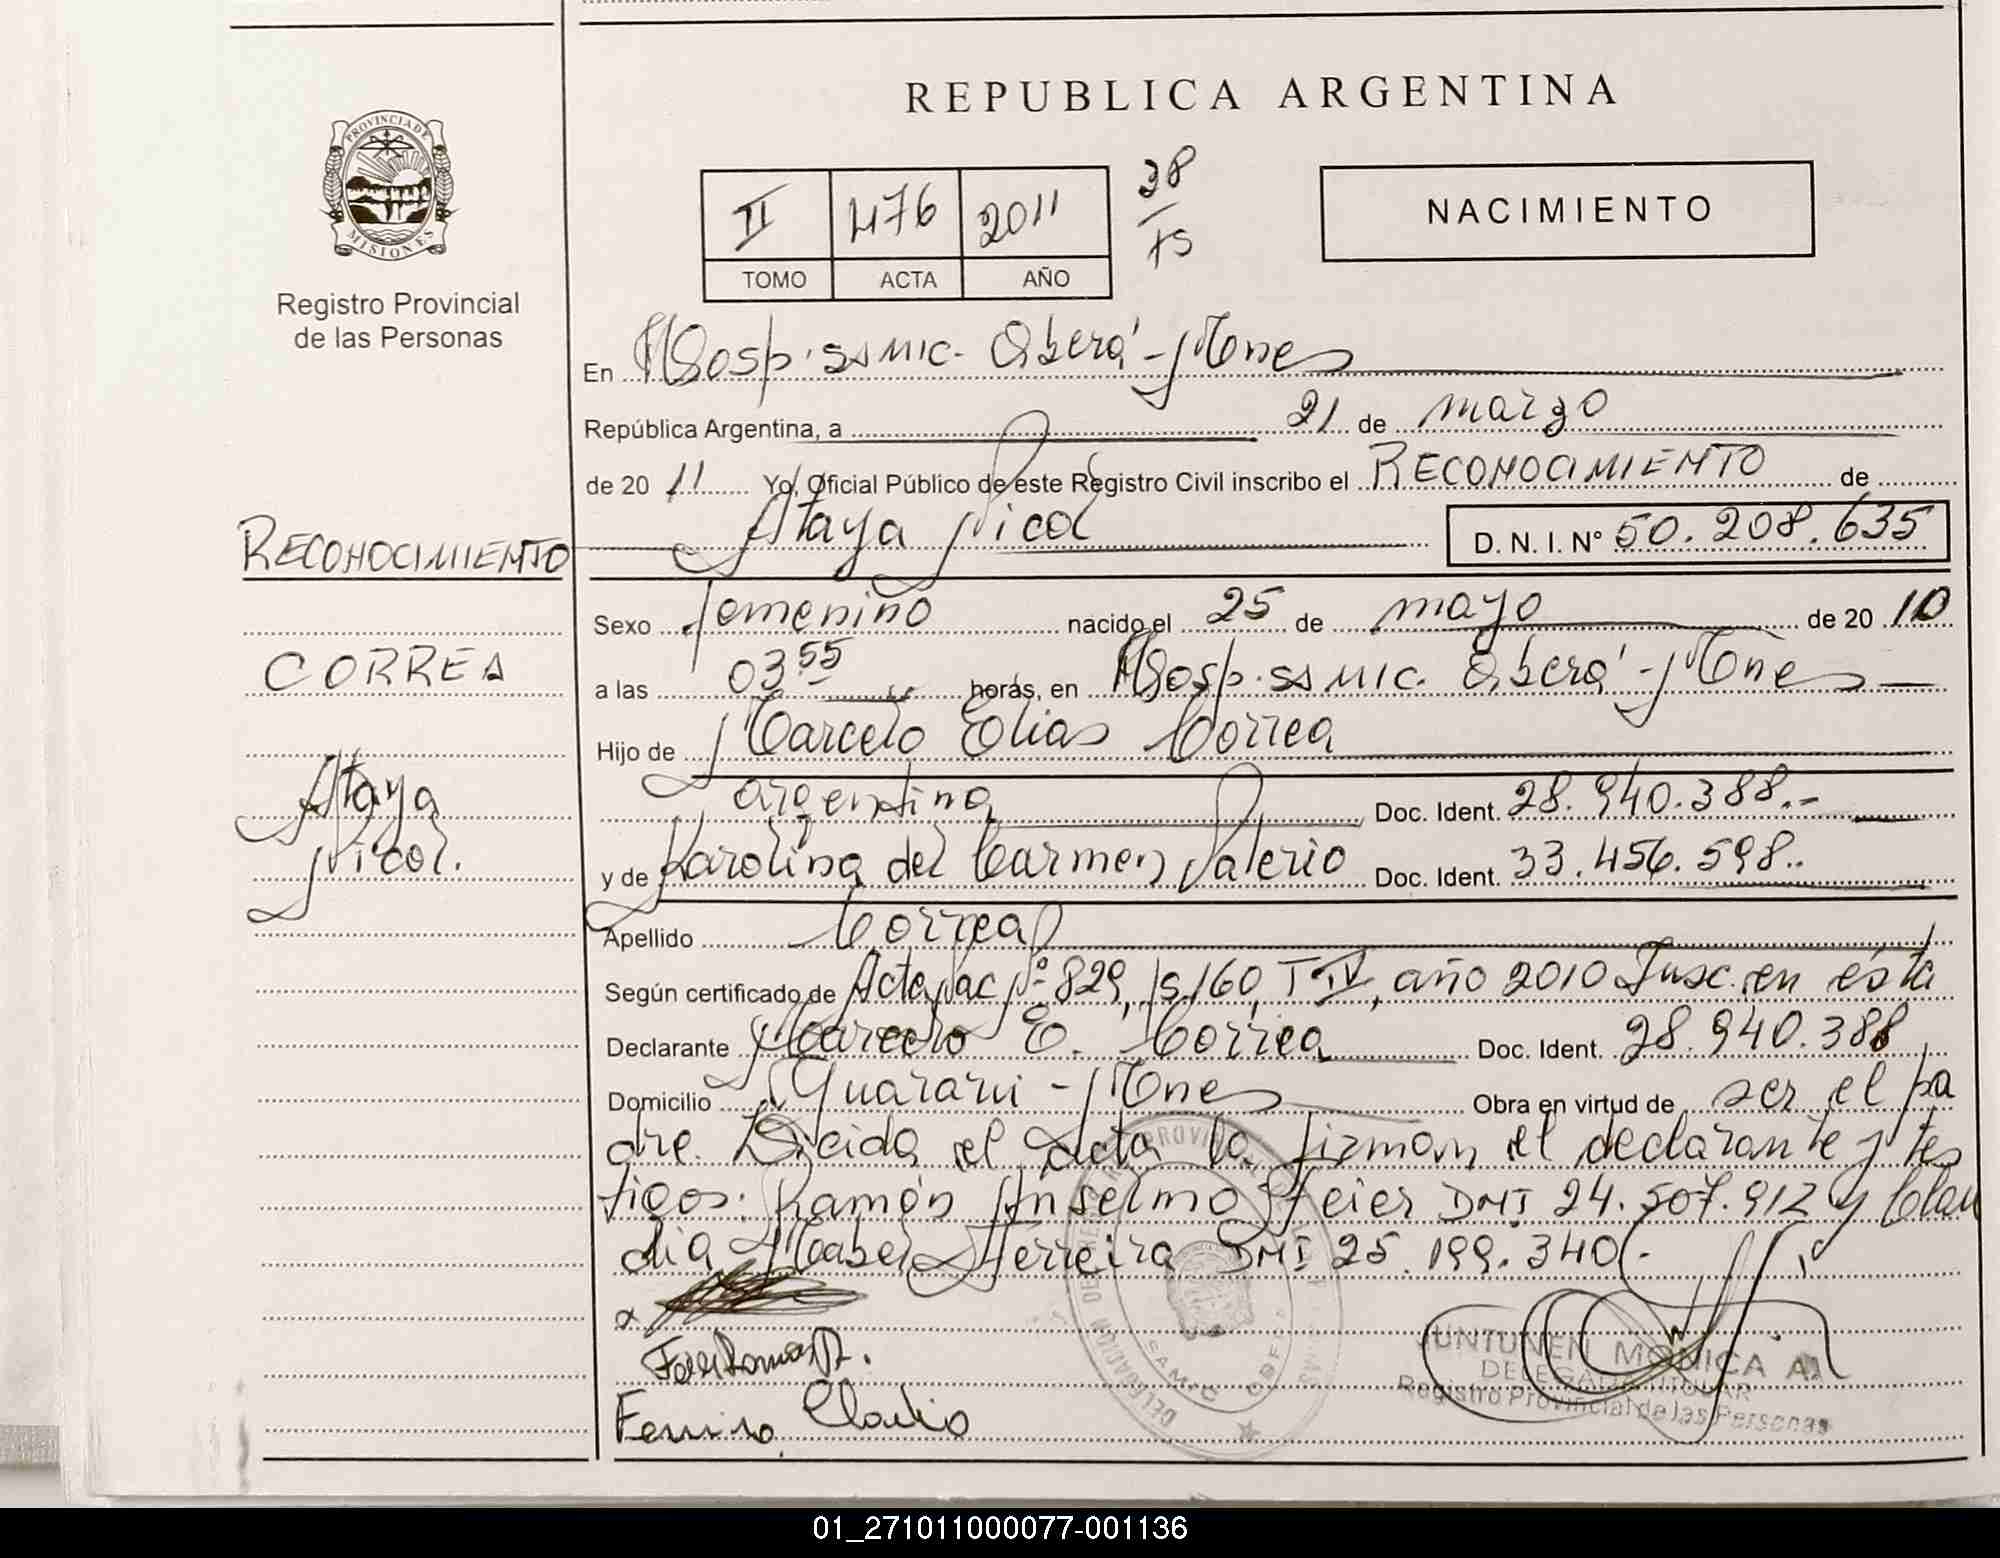 REPUBLICA ARGENTINA
PROVINCIA DE
MISIONES
Registro Provincial
de las Personas
II 476 2011
TOMO ACTA AÑO
38
75
NACIMIENTO
En Hosp. SAMIC. Oberá - Mnes
República Argentina, a 21 de marzo
de 20 11 Yo, Oficial Público de este Registro Civil inscribo el RECONOCIMIENTO de
Ataya Nicol D. N. I. N° 50.208.635
RECONOCIMIENTO
CORREA
Ataya
Nicol.
Sexo femenino nacido el 25 de mayo de 20 10
a las 03.55 horas, en Hosp. SAMIC. Oberá - Mnes
Hijo de Marcelo Elias Correa
argentina Doc. Ident. 28.940.388.-
y de Karolina del Carmen Valerio Doc. Ident. 33.456.598..
Apellido Correa
Según certificado de Acta Nac Nº 829, fs. 160, T IV, año 2010 Insc. en ésta
Declarante Marcelo E. Correa Doc. Ident. 28.940.388
Domicilio Guaraní - Mnes Obra en virtud de ser el pa
dre. Leida el Acta la firman el declarante y tes
tigos: Ramón Anselmo Feier DNI 24.507.912 y Clau
dia Mabel Ferreira DNI 25.199.340.-
x
Ferreira Claudia
SAMIC OBERA
JUNTUNEN MONICA A.
DELEGADA TITULAR
Registro Provincial de las Personas
01_271011000077-001136